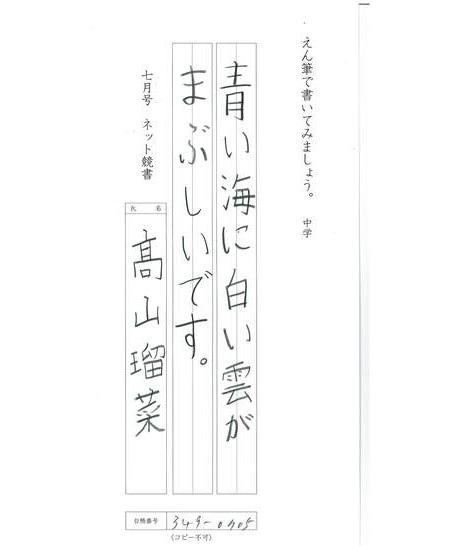 えん筆で書いてみましょう。 中学
青い海に白い雲が
まぶしいです。
七月号 ネット競書
氏名
髙山瑠菜
台帳番号 349-0705
(コピー不可)